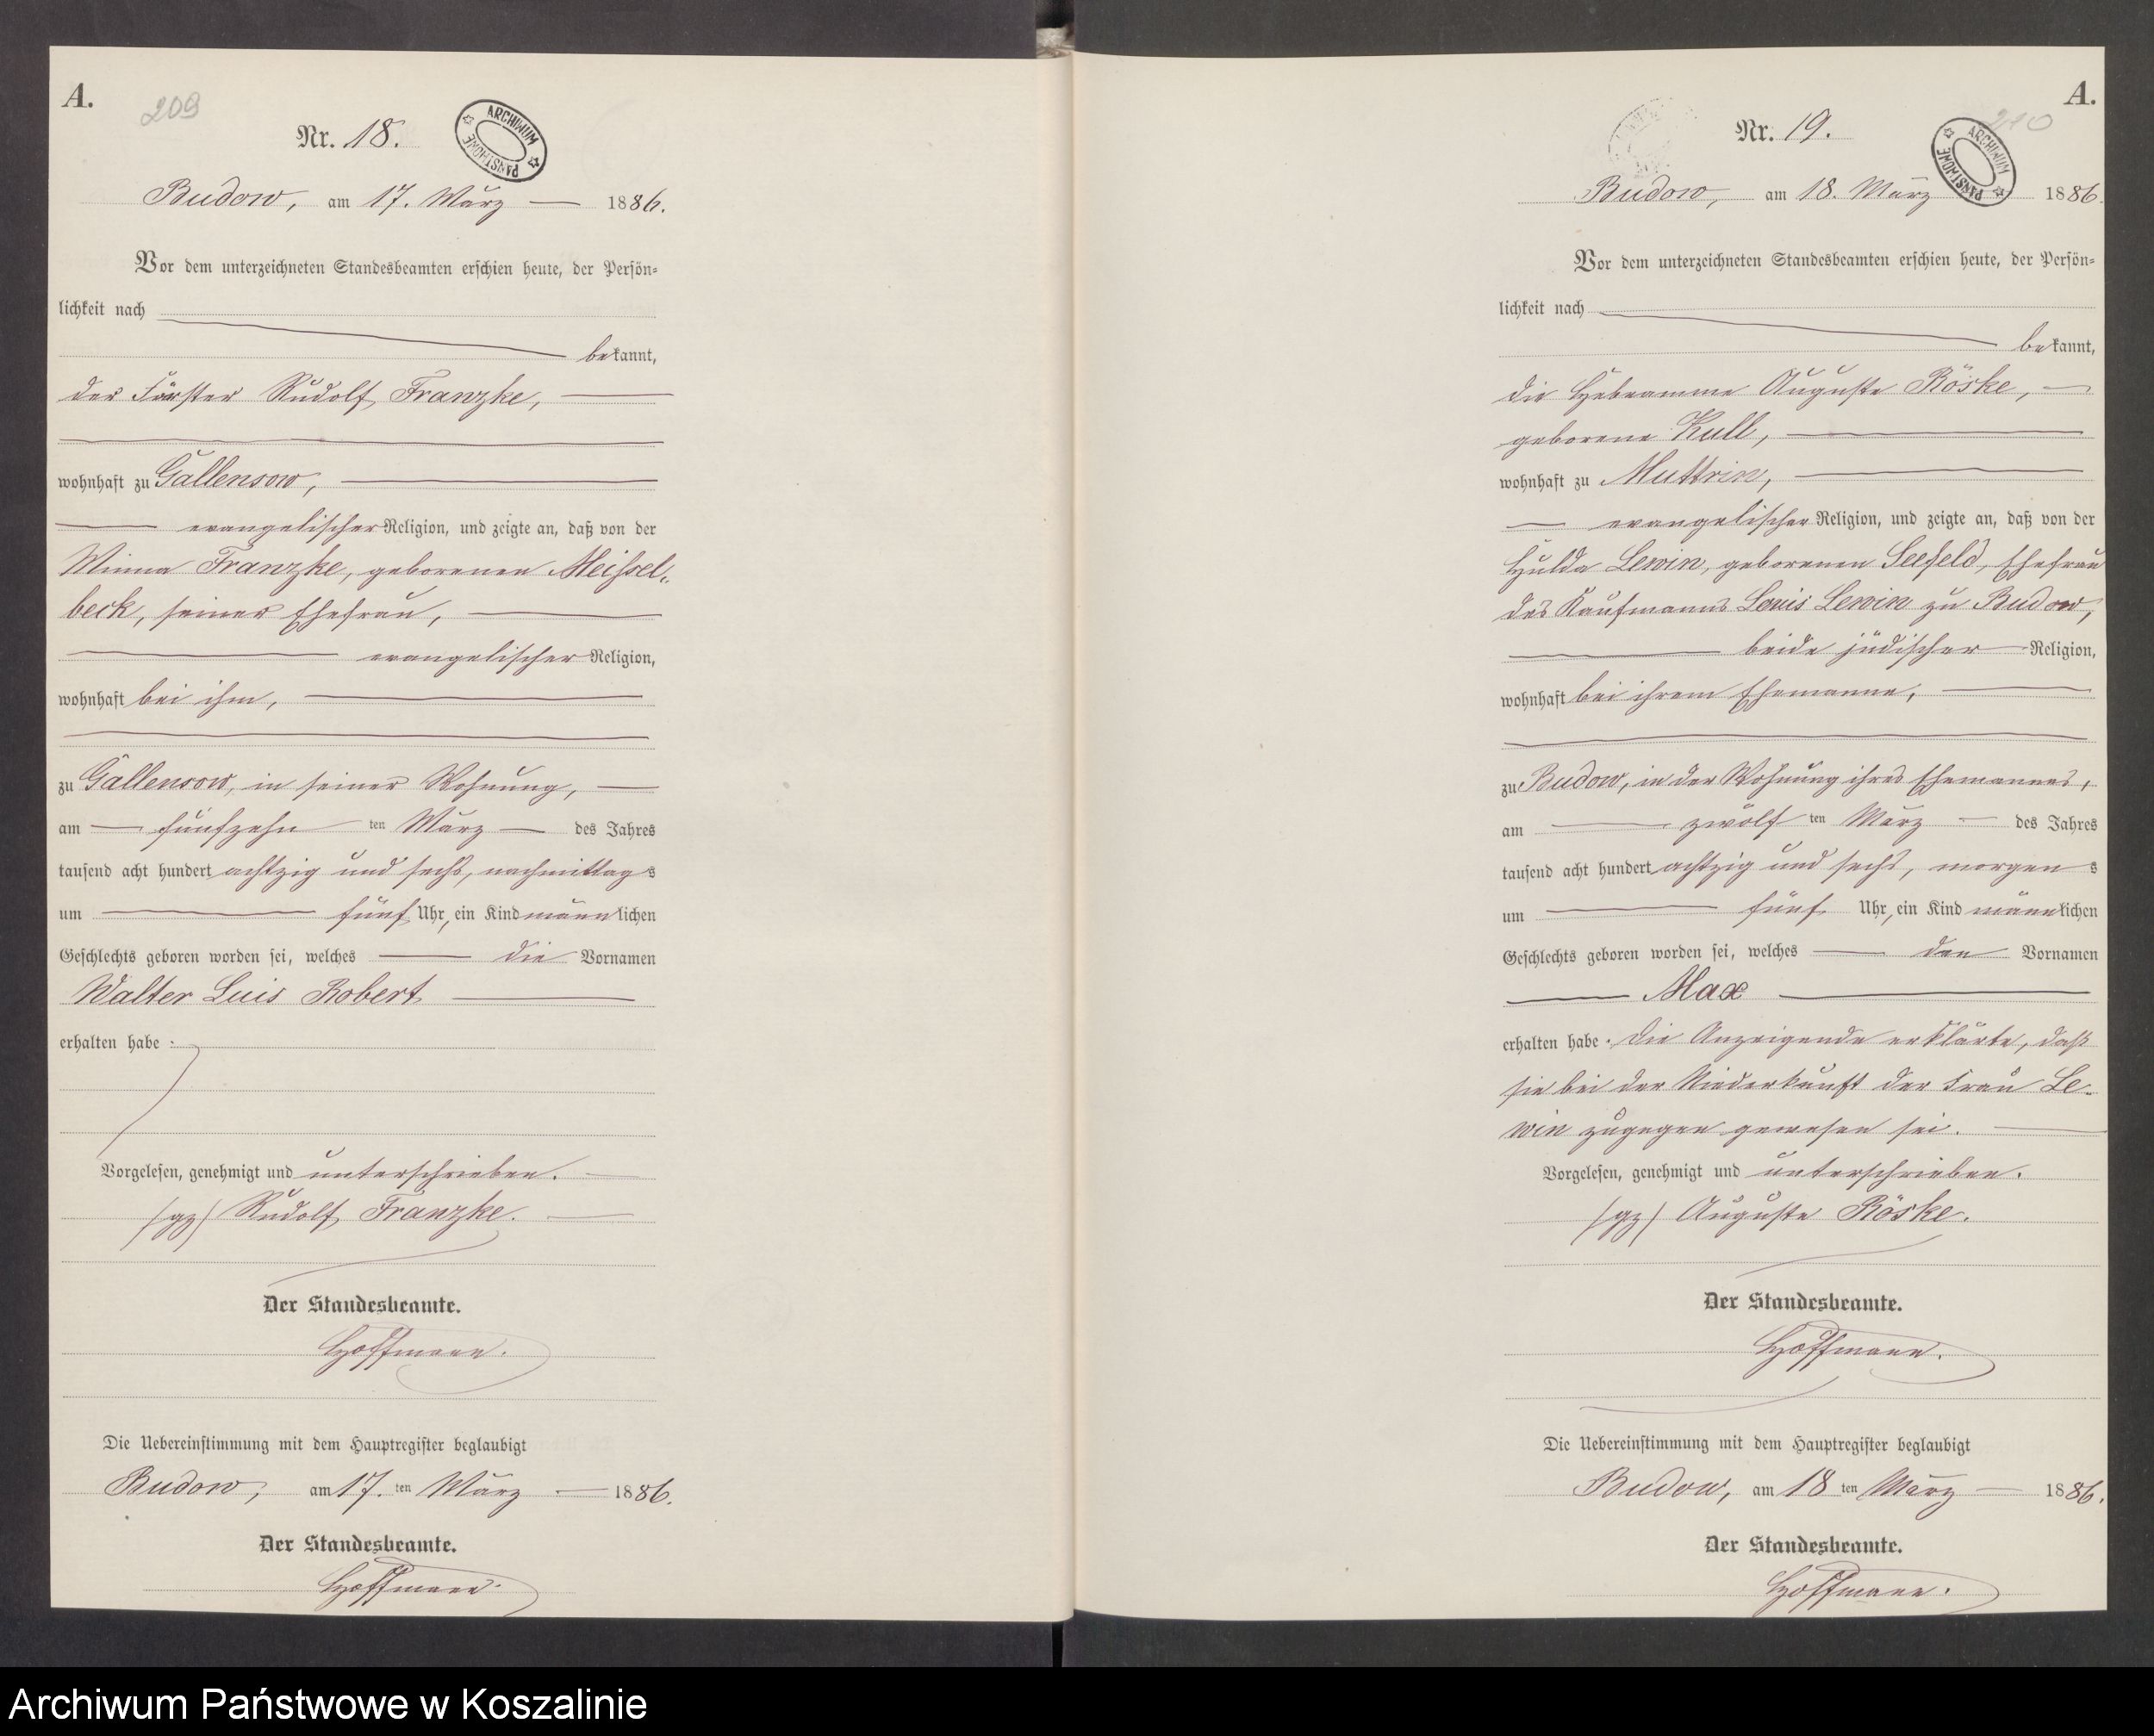 A.
209
Nr. 18.
ARCHIWUM PAŃSTWOWE
Budow, am 17. März 1886.
Vor dem unterzeichneten Standesbeamten erschien heute, der Persön-
lichkeit nach
bekannt,
der Förster Rudolf Franzke,
wohnhaft zu Gallensow,
evangelischer Religion, und zeigte an, daß von der
Minna Franzke, geborenen Meissel-
beck, seiner Ehefrau,
evangelischer Religion,
wohnhaft bei ihm,
zu Gallensow, in seiner Wohnung,
am fünfzehn ten März des Jahres
tausend acht hundert achtzig und sechs, nachmittags
um fünf Uhr, ein Kind männlichen
Geschlechts geboren worden sei, welches die Vornamen
Walter Luis Robert
erhalten habe.
Vorgelesen, genehmigt und unterschrieben.
/gz/ Rudolf Franzke.
Der Standesbeamte.
Hoffmann.
Die Uebereinstimmung mit dem Hauptregister beglaubigt
Budow, am 17. ten März 1886.
Der Standesbeamte.
Hoffmann.
A.
210
Nr. 19.
ARCHIWUM PAŃSTWOWE
Budow, am 18. März 1886.
Vor dem unterzeichneten Standesbeamten erschien heute, der Persön-
lichkeit nach
bekannt,
die Hebeamme Auguste Röske,
geborene Kull,
wohnhaft zu Muttrin,
evangelischer Religion, und zeigte an, daß von der
Hulda Lewin, geborenen Seefeld, Ehefrau
des Kaufmanns Louis Lewin zu Budow,
beide jüdischer Religion,
wohnhaft bei ihrem Ehemanne,
zu Budow, in der Wohnung ihres Ehemannes,
am zwölf ten März des Jahres
tausend acht hundert achtzig und sechs, morgens
um fünf Uhr, ein Kind männlichen
Geschlechts geboren worden sei, welches den Vornamen
Max
erhalten habe. Die Anzeigende erklärte, daß
sie bei der Niederkunft der Frau Le-
win zugegen gewesen sei.
Vorgelesen, genehmigt und unterschrieben.
/gz/ Auguste Röske.
Der Standesbeamte.
Hoffmann.
Die Uebereinstimmung mit dem Hauptregister beglaubigt
Budow, am 18 ten März 1886.
Der Standesbeamte.
Hoffmann.
Archiwum Państwowe w Koszalinie